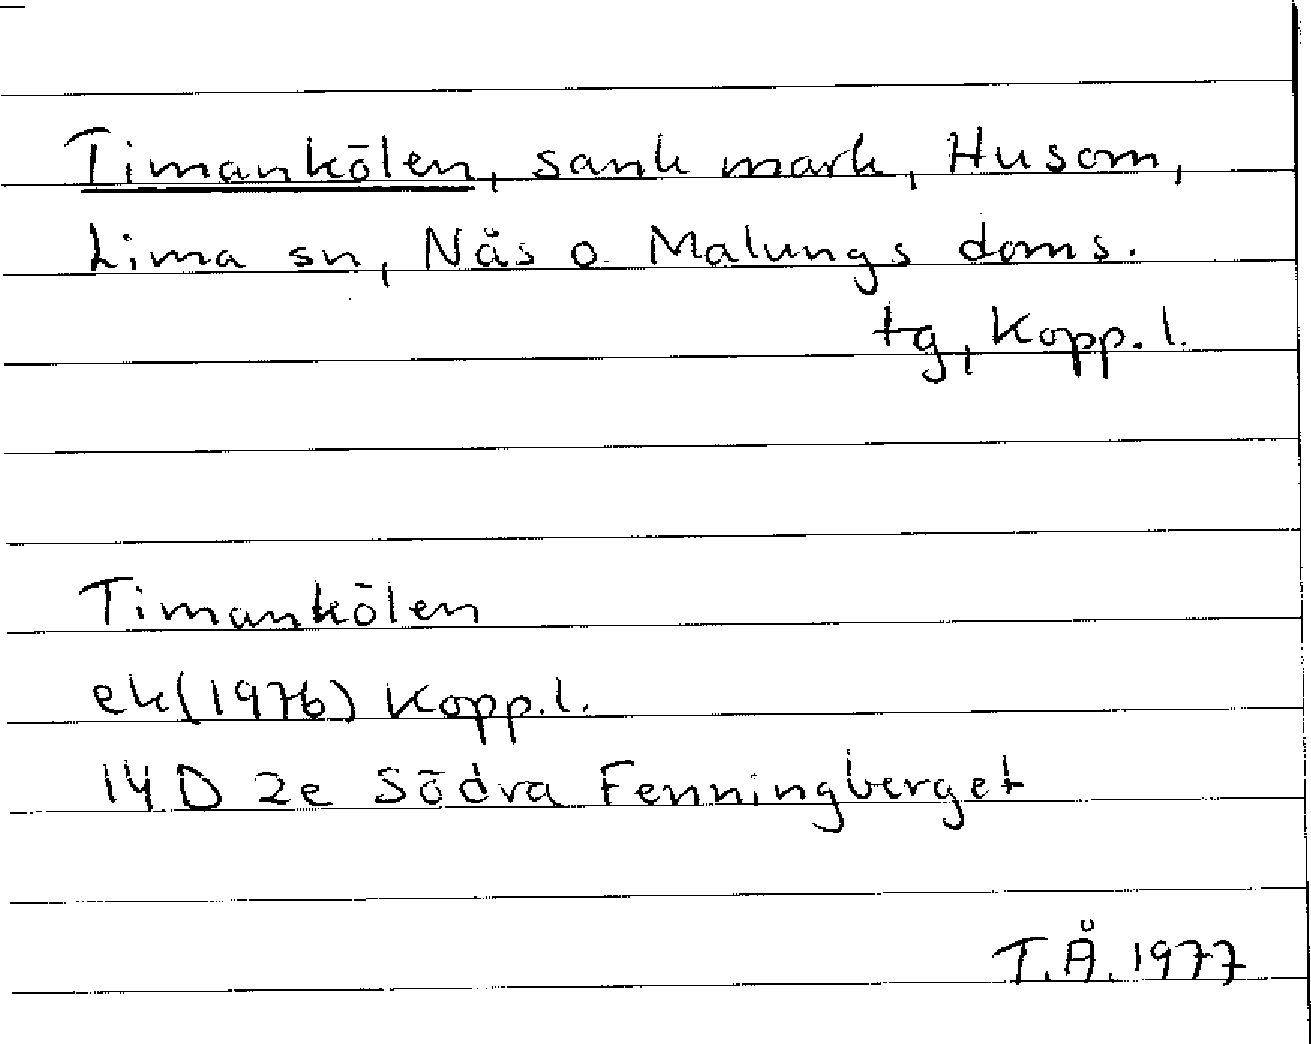 Timankölen, sank mark, Husom,
Lima sn, Nås o Malungs doms.
tg, Kopp. l.
Timankölen
ek(1976) Kopp.l.
14 D 2e Södra Fenningberget
T.Å. 1977